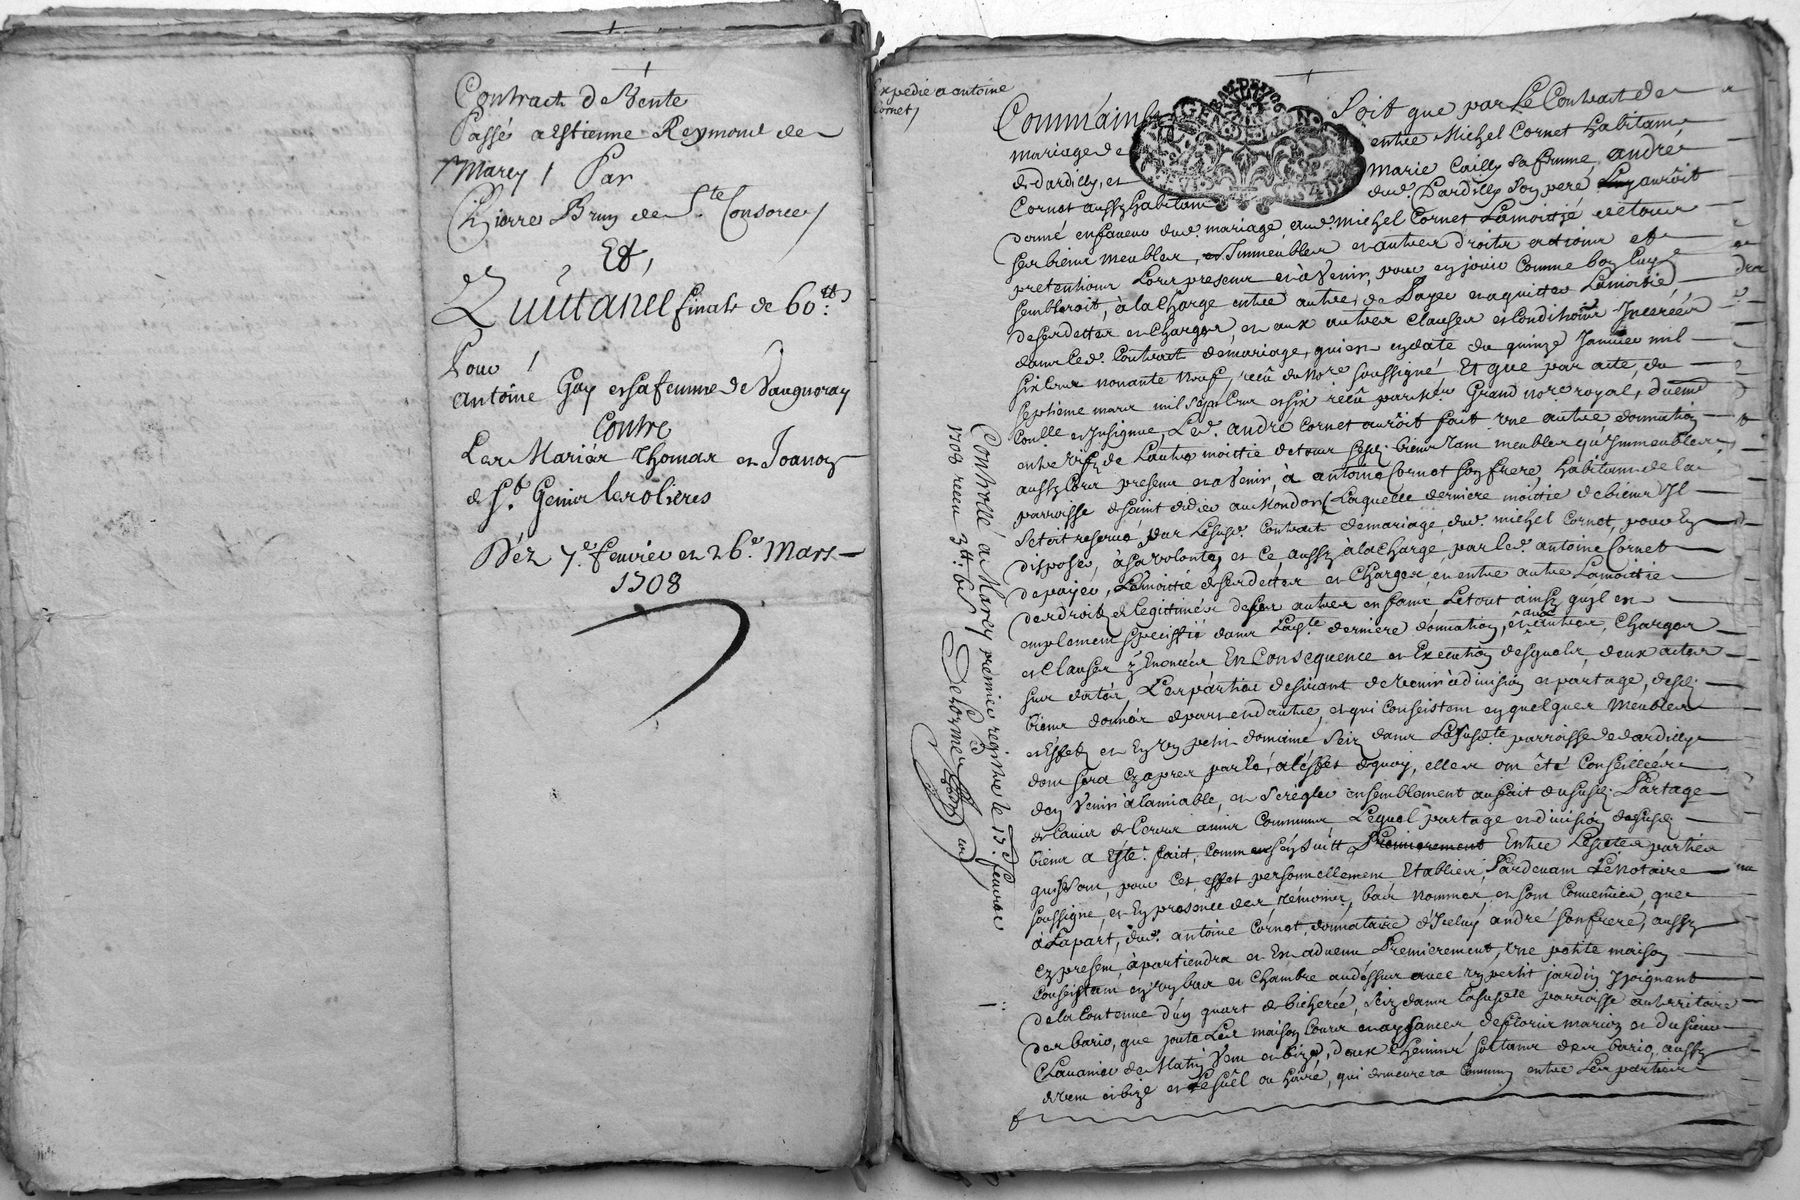 Contract De Vente
Passé a Estienne Reymond de
Marcy / Par
Pierre Brun de Ste Consorce /
Et,
Quittance finale de 60 tt
Pour /
antoine Gay et sa femme de Vaugneray
Contre
Les Mariés Thomas et Joanon
de St. Genis les olieres
Déz 7e. feuvrier et 26e. Mars
1708
Expedié a antoine
Cornet /
Comm'ainsy Soit que par Le Contract de
mariage de entre Michel Cornet habitant
de dardilly, et Marie Cailly sa femme, andré
Cornet aussy habitant dud. Dardilly son peré auroit
donné en faueur dud. mariage, aud. michel Cornet Lamoittié de tous
ses biens meubles, et Immeubles et autres droits actions et
pretentions Lors presens et à Venir, pour en jouir Comme bon luy
sembleroit, à la charge entre autres, de Payer et aquitter Lamoitié
de ses dettes et Charges, et aux autres Clauses et Conditions Inserées
dans led. Contract de mariage, qui est en date du quinze Januier mil
six Cens nonante Neuf, receu du No.re soussigné Et que par acte, du
septième mars mil sept Cens et six receu par Me. Grand no.re royal, duëmt
Conllé et Insignué, Le d. andré Cornet auroit fait Vne autre donnation
entre Vifs de Lautre moittié de tous sesd. biens tant meubles qu'Immeubles
aussy Lors presens et a Venir, à antoine Cornet son frere, habitant de la
parroisse de saint didier au Mondor, Laquelle derniere moitié de biens Il
s'etoit reserué par Lesusd. Contract demariage, dud. michel Cornet, pour En
disposer, à sa volonté, et Ce, aussy à la charge, par led. antoine Cornet
de payer, Lamoitié de ses dettes et Charges, et entre autre Lamoittié
des droits de legittimes de ses autres enfans, Le tout ainsy qu'il est
amplement speciffié dans Lasd.te derniere donnation, et aux autres, Charges
et Clauses y Enoncées En Consequence et Execution desquels, deux actes
sus datés, Les parties desirant de Venir à diuision et partage, desd.
biens donnés de part et d'autre, et qui Consistent en quelques meubles
et Effets et En Vn petit domaine Sciz dans Lasusd.te parroisse de dardilly
dont sera Cy apres parlé, a l'effet de quoy, elles ont été Conseilleés
d'en Venir à lamiable, et se regler ensemblement au fait du susd. Partage
de l'auis de Leurs amis Communs Lequel partage et diuision desusd.
biens a Esté fait, Comm'en sen suitt Premierement Entre Lesd.tes parties
qui se sont, pour Cet, effet personnellement Etablies, Pardeuant Le Notaire
soussigné, et En presence des témoins, bas nommés, et sont Conuenües, que
à Lapart, dud. antoine Cornet, donnataire d'Iceluy andré son frere, aussy
Cy present, àpartiendra et En aduenu Premierement, Vne petite maison
Consistant en Vn bas et Chambre audessus auec Vn petit jardin Joignant
de la Contenue d'un quart de bicherée, Sciz dans lasusd.te parroisse au territoire
des bario, que jouxte Les maison Cours et aysances de florie marion et du sieur
Chauanier de Matin Vent et bize, deux Chemins sortans des bario, aussy
de vent et bize et Le suël ou hairé, qui demeurera Commun entre Les parties
Controllé a Marcy premier registre le 17e. feuvrier
1708 receu 3tt. 6s Delorme